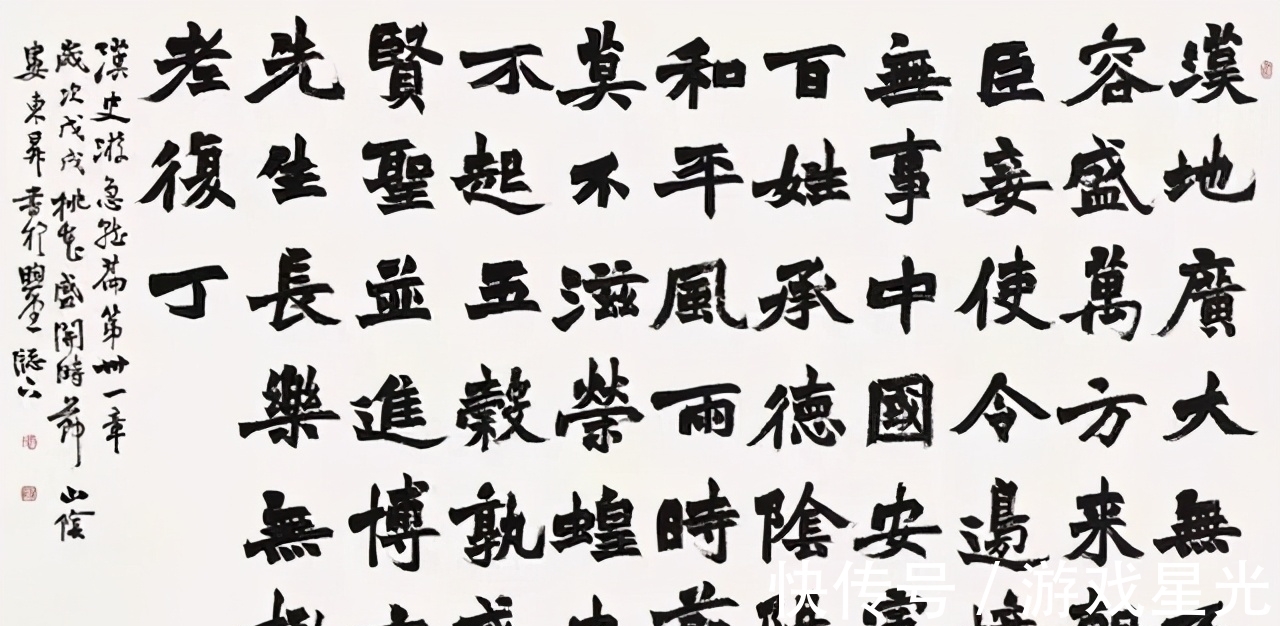 漢地廣大無
容盛萬方来
臣妾使令邊
無事中國安
百姓承德陰
和平風雨時
莫不滋榮蝗
不起五穀孰
賢聖並進博
先生長樂無
老復丁
漢史游急就篇第卅一章
歲次戊戌桃花盛開時節 山陰
婁東昇書於
快传号 / 游戏星光